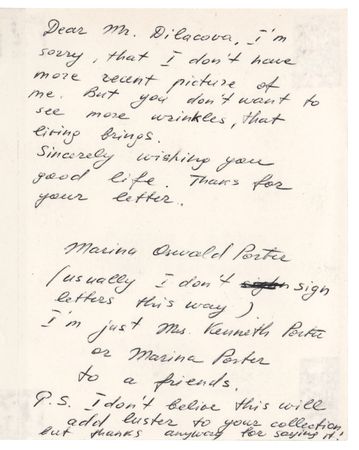 Dear Mr. Dilacova, I'm
sorry, that I don't have
more recent picture of
me. But you don't want to
see more wrinkles, that
living brings.
Sincerely wishing you
good life. Thanks for
your letter.
Marina Oswald Porter
(usually I don't sign
letters this way)
I'm just Mrs. Kenneth Porter
or Marina Porter
to a friends.
P.S. I don't belive this will
add luster to your collection,
but thanks anyway for saying it!